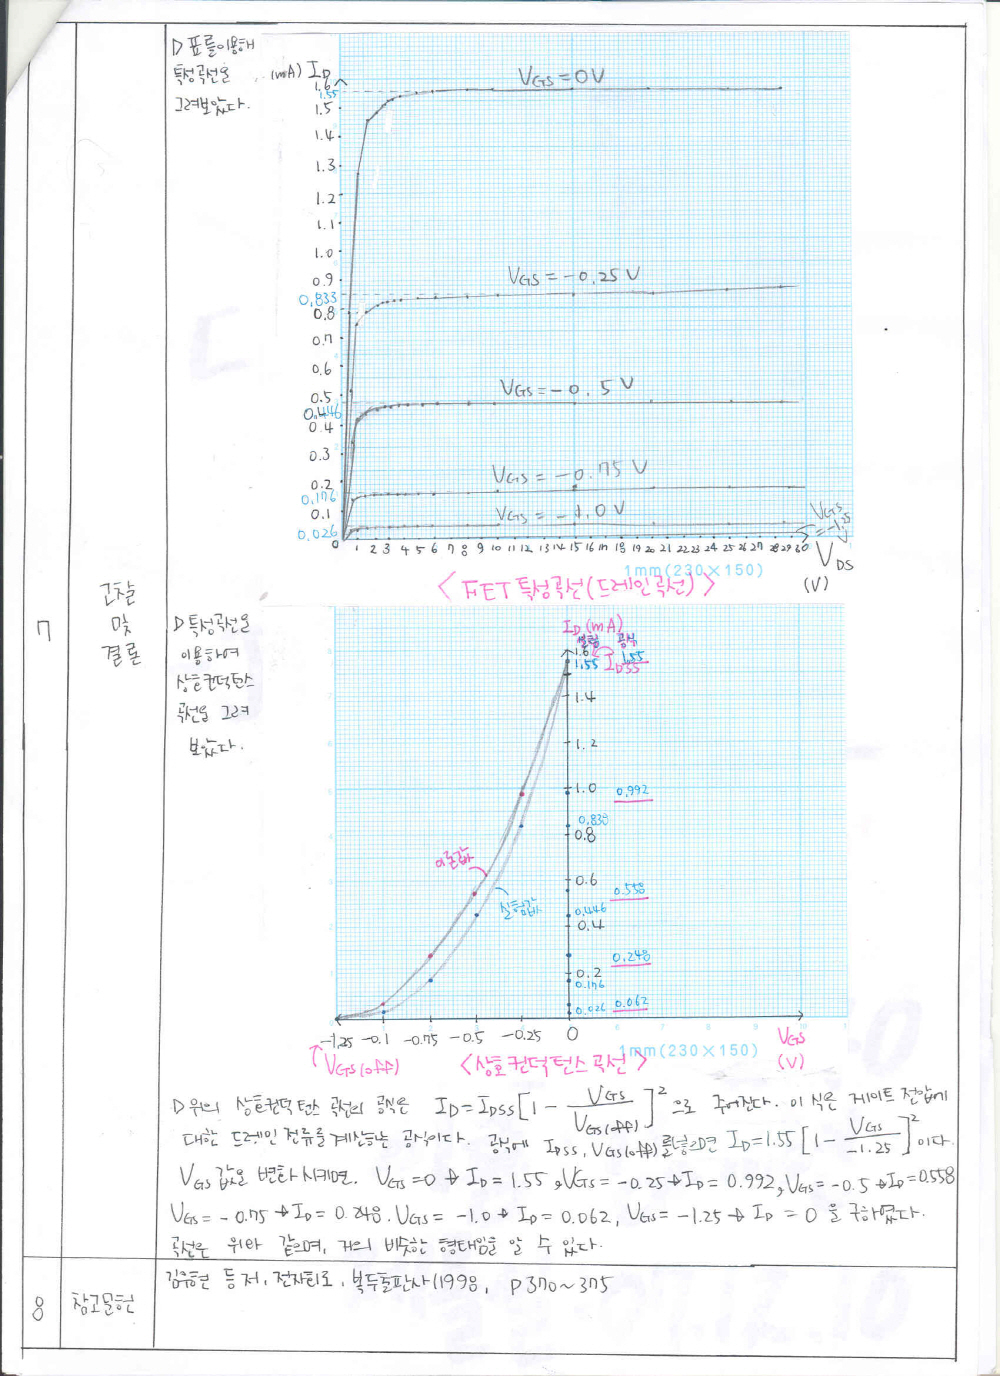 ▷ 표를이용해
특성곡선을
그려보았다.
(mA) I_D
V_GS=0V
1.6
1.55
1.5
1.4
1.3
1.2
1.1
1.0
0.9
V_GS=-0.25 V
0.833
0.8
0.7
0.6
0.5
V_GS=-0.5 V
0.446
0.4
0.3
V_GS=-0.75 V
0.2
0.176
V_GS=-1.0 V
0.1
0.026
V_GS
=-1.25
0 1 2 3 4 5 6 7 8 9 10 11 12 13 14 15 16 17 18 19 20 21 22 23 24 25 26 27 28 29 30
V_DS
(V)
1mm(230×150)
<FET 특성곡선(드레인곡선)>
7
고찰
및
결론
▷특성곡선을
이용하여
상호컨덕턴스
곡선을 그려
보았다.
I_D(mA)
실험 공식
1.6
1.55 I_DSS 1.55
1.4
1.2
1.0 0.992
0.830
0.8
이론값
0.6
0.558
실험값
0.446
0.4
0.248
0.2
0.176
0.026 0.062
-1.25 -0.1 -0.75 -0.5 -0.25 0
V_GS
(V)
↑V_GS(off)
<상호컨덕턴스 곡선>
1mm(230×150)
▷위의 상호컨덕턴스 곡선의 공식은 I_D=I_DSS[1-V_GS/V_GS(off)]^2 으로 주어진다. 이 식은 게이트 전압에
대한 드레인 전류를 계산하는 공식이다. 공식에 I_DSS, V_GS(off)를 넣으면 I_D=1.55[1-V_GS/-1.25]^2이다.
V_GS 값을 변화 시키면. V_GS=0→I_D=1.55, V_GS=-0.25→I_D=0.992, V_GS=-0.5→I_D=0.558
V_GS=-0.75→I_D=0.248. V_GS=-1.0→I_D=0.062, V_GS=-1.25→I_D=0 을 구하였다.
곡선은 위와 같으며, 거의 비슷한 형태임을 알 수 있다.
8
참고문헌
김우현 등저, 전자회로, 복두출판사(1998, P370~375